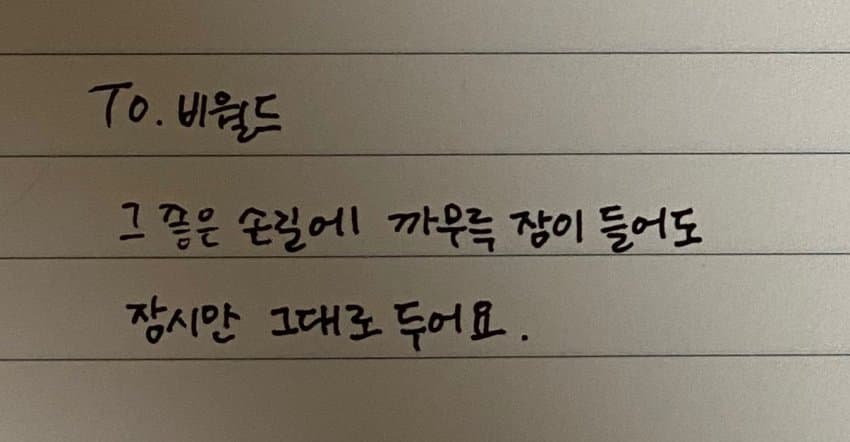 To. 비월드
그 쫌은 손길에 까무룩 잠이 들어도
잠시만 그대로 두어요.